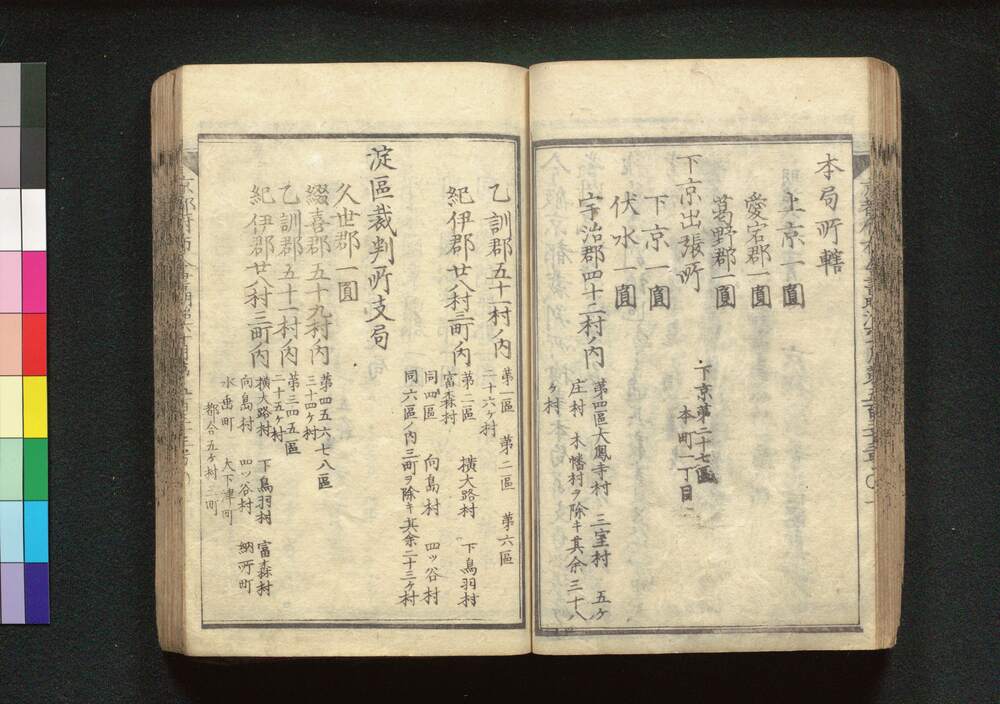 本局所轄
上京一圓
愛宕郡一圓
葛野郡一圓
下京出張所 下京第二十七區
本町一丁目
下京一圓
伏水一圓
宇治郡四十二村ノ内 第四區大鳳寺村 三室村 五ヶ
庄村 木幡村ヲ除キ其余三十八
ヶ村
乙訓郡五十一村ノ内 第一區 第二區 第六區
二十六ヶ村
紀伊郡廿八村三町ノ内 第二區 横大路村 下鳥羽村
富森村
同四區 向島村 四ッ谷村
同六區ノ内三町ヲ除キ其余二十三ヶ村
淀區裁判所支局
久世郡一圓
綴喜郡五十九村ノ内 第四五六七八區
三十四ヶ村
乙訓郡五十一村ノ内 第三四五區
二十五ヶ村
紀伊郡廿八村三町ノ内 横大路村 下鳥羽村 富森村
向島村 四ッ谷村 納所町
水垂町 大下津町
都合五ヶ村三町